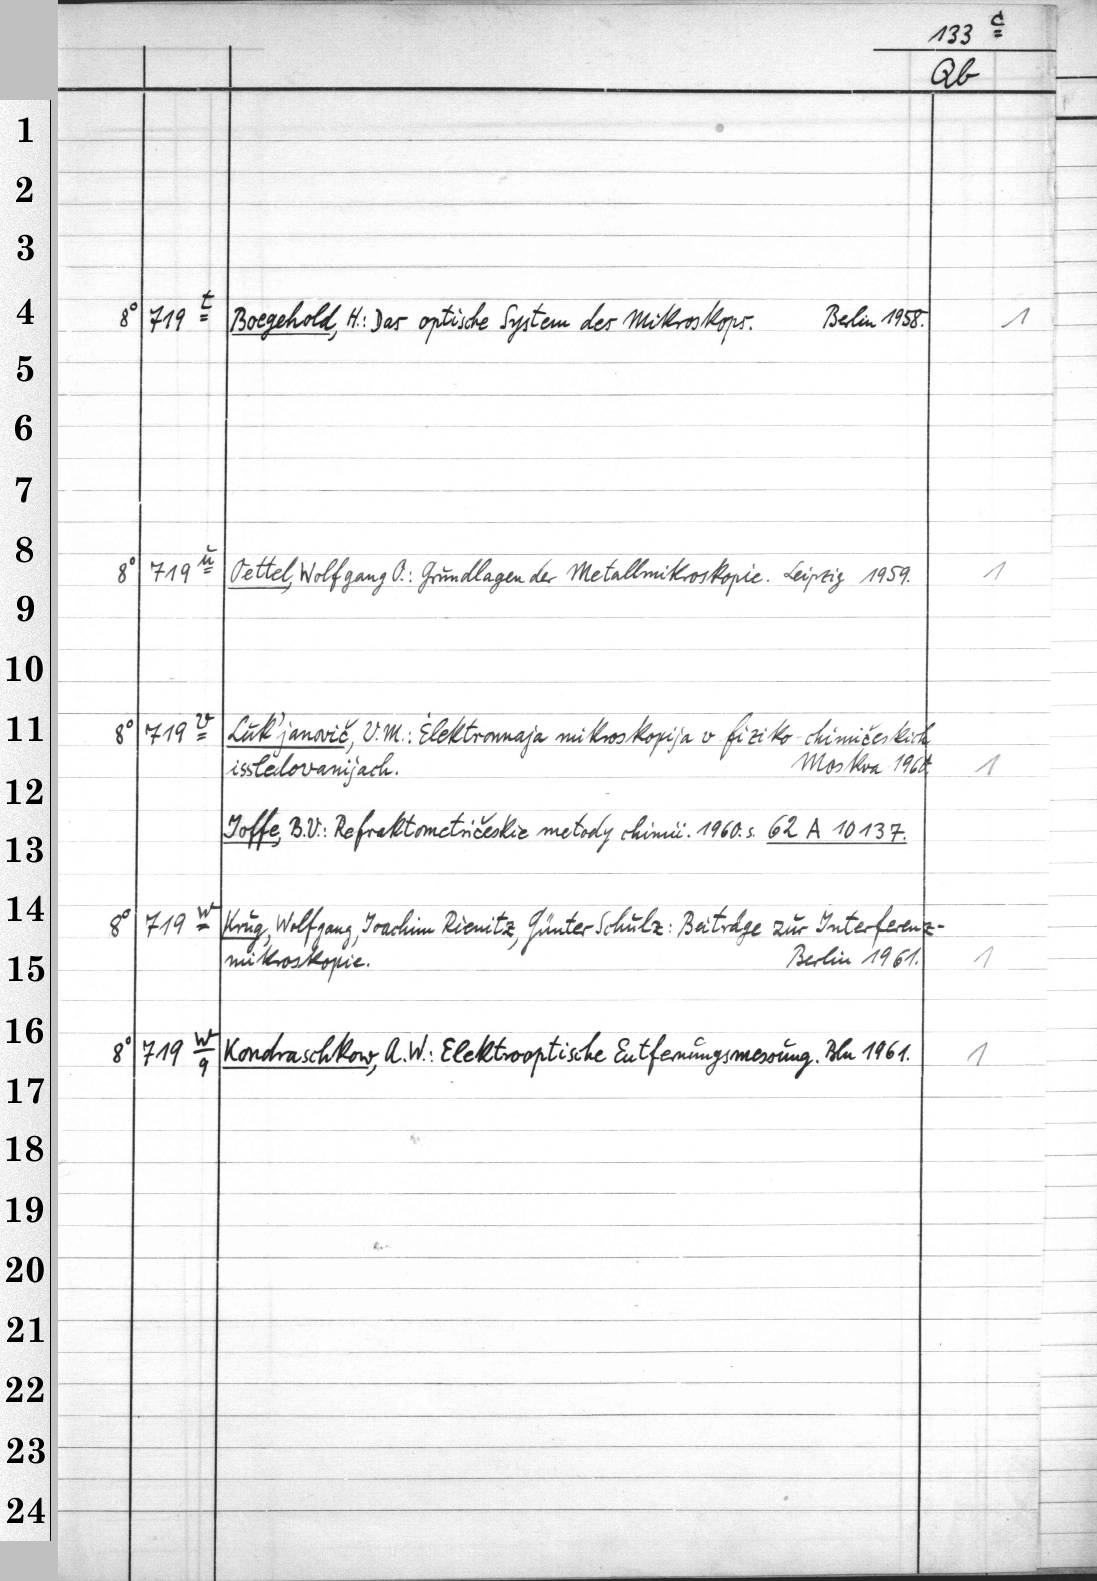 133 c
Qb
1
2
3
4
8° 719 t Boegehold, H.: Das optische System des Mikroskops. Berlin 1958. 1
5
6
7
8
8° 719 u Oettel, Wolfgang O.: Grundlagen der Metallmikroskopie. Leipzig 1959. 1
9
10
11
8° 719 v Luk'janovič, V.M.: Ėlektronnaja mikroskopija v fiziko-chimičeskich
issledovanijach. Moskva 1960. 1
12
Ioffe, B.V.: Refraktometričeskie metody chimii. 1960. s. 62 A 10137.
13
14
8° 719 w Krug, Wolfgang, Joachim Rienitz, Günter Schulz: Beiträge zur Interferenz-
mikroskopie. Berlin 1961. 1
15
16
8° 719 w/a Kondraschkow, A.W.: Elektrooptische Entfernungsmessung. Bln 1961. 1
17
18
19
20
21
22
23
24